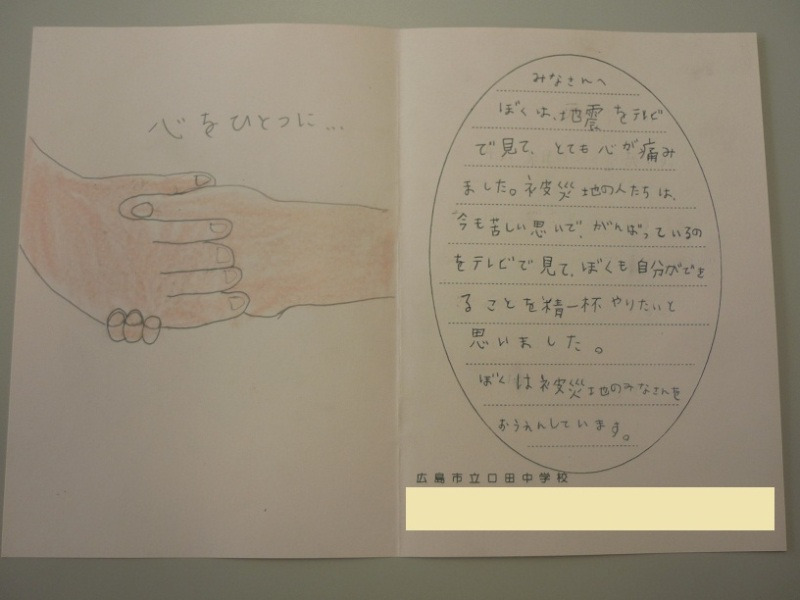 心をひとつに…
みなさんへ
ぼくは、地震をテレビ
で見て、とても心が痛み
ました。被災地の人たちは、
今も苦しい思いで、がんばっているの
をテレビで見て、ぼくも自分ができ
ることを精一杯やりたいと
思いました。
ぼくは被災地のみなさんを
おうえんしています。
広島市立口田中学校